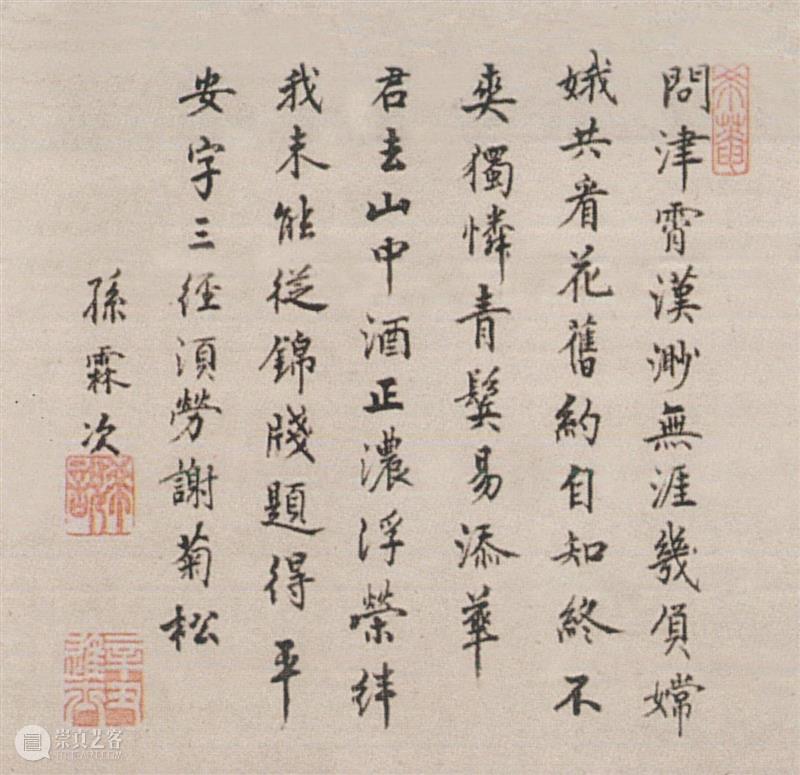 問津霄漢渺無涯幾負嫦
娥共看花舊約自知終不
爽獨憐青鬢易添華
君去山中酒正濃浮榮絆
我未能從錦牋題得平
安字三徑須勞謝菊松
孫霖次
崇真艺客